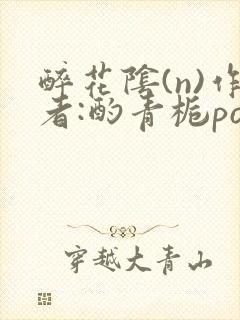 醉花陰(n)作
者:酌青栀po
穿越大青山